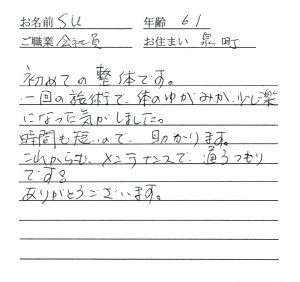 お名前 SU 年齢 61
ご職業 会社員 お住まい 泉町
初めての整体です。
一回の施術で、体のゆがみが、少し楽
になった気がしました。
時間も短いので、助かります。
これからも、メンテナンスで、通うつもり
です。
ありがとうございます。